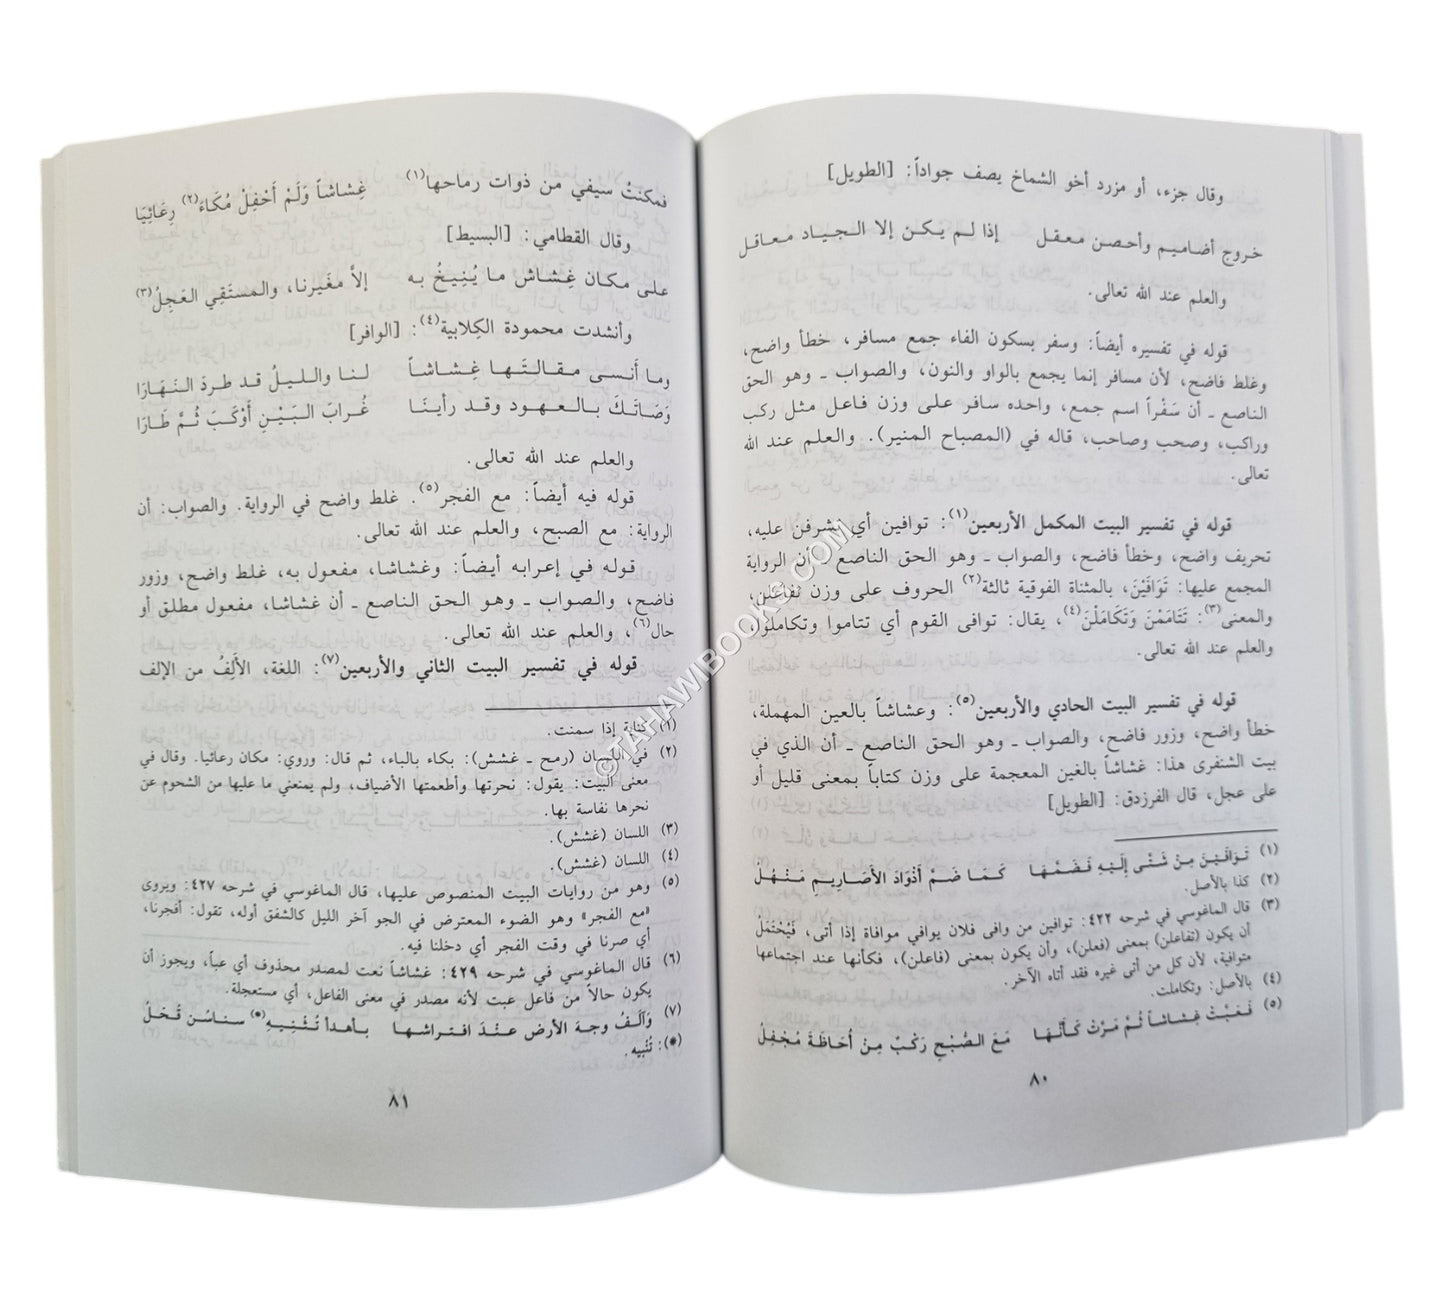 وقال جزء، أو مزرد أخو الشماخ يصف جواداً: [الطويل]
خروج أضاميم وأحصن معقل    إذا لم يكن إلا الجياد معاقل
والعلم عند الله تعالى.
قوله في تفسيره أيضاً: وسفر بسكون الفاء جمع مسافر، خطأ واضح،
وغلط فاضح، لأن مسافر إنما يجمع بالواو والنون، والصواب ـ وهو الحق
الناصع ـ أن سَفْراً اسم جمع، واحده سافر على وزن فاعل مثل ركب
وراكب، وصحب وصاحب، قاله في (المصباح المنير). والعلم عند الله
تعالى.
قوله في تفسير البيت المكمل الأربعين(١): توافين أي يشرفن عليه،
تحريف واضح، وخطأ فاضح، والصواب ـ وهو الحق الناصع ـ أن الرواية
المجمع عليها: تَوَافَيْنَ، بالمثناة الفوقية ثالثة(٢) الحروف على وزن تفاعلن،
والمعنى(٣): تَتَامَمْنَ وَتَكَامَلْنَ(٤)، يقال: توافى القوم أي تتاموا وتكاملوا،
والعلم عند الله تعالى.
قوله في تفسير البيت الحادي والأربعين(٥): وعشاشاً بالعين المهملة،
خطأ واضح، وزور فاضح، والصواب ـ وهو الحق الناصع ـ أن الذي في
بيت الشنفرى هذا: غشاشاً بالغين المعجمة على وزن كتاباً بمعنى قليل أو
على عجل، قال الفرزدق: [الطويل]
(١) تَوَافَيْنَ مِنْ شَتَّى إِلَيْهِ فَضَمَّهَا    كَمَا ضَمَّ أَذْوَادَ الأَصَارِيمِ مَنْهَلُ
(٢) كذا بالأصل.
(٣) قال الماغوسي في شرحه ٤٢٢: توافين من وافى فلان يوافي موافاة إذا أتى، فَيُحْتَمَلُ
أن يكون (تفاعلن) بمعنى (فعلن)، وأن يكون بمعنى (فاعلن)، فكأنها عند اجتماعها
متوافية، لأن كل من أتى غيره فقد أتاه الآخر.
(٤) بالأصل: وتكاملت.
(٥) فَعَبَّتْ غِشَاشاً ثُمَّ مَرَّتْ كَأَنَّهَا    مَعَ الصُّبْحِ رَكْبٌ مِنْ أُحَاظَةَ مُجْفِلُ
٨٠
فمكنتُ سيفي من ذوات رماحها(١)    غِشاشاً وَلَمْ أَحْفِلْ مُكَاءَ(٢) رِعَائِيَا
وقال القطامي: [البسيط]
على مكان غِشاش ما يُنِيخُ به    إلاَّ مغَيرنا، والمستَقِي العَجِلُ(٣)
وأنشدت محمودة الكِلابية(٤): [الوافر]
وما أَنسى مقالتَها غِشاشاً    لنا والليلُ قد طردَ النَهَارَا
وَصَاتَكَ بالعهود وقد رأينَا    غُرابَ البَيْنِ أَوْكَبَ ثُمَّ طَارَا
والعلم عند الله تعالى.
قوله فيه أيضاً: مع الفجر(٥). غلط واضح في الرواية. والصواب: أن
الرواية: مع الصبح، والعلم عند الله تعالى.
قوله في إعرابه أيضاً: وغشاشا، مفعول به، غلط واضح، وزور
فاضح، والصواب ـ وهو الحق الناصع ـ أن غشاشا، مفعول مطلق أو
حال(٦)، والعلم عند الله تعالى.
قوله في تفسير البيت الثاني والأربعين(٧): اللغة، الأَلِفُ من الإلف
(١) كناية إذا سمنت.
(٢) في اللسان (رمح ـ غشش): بكاء بالباء، ثم قال: وروي: مكان رعائيا. وقال في
معنى البيت: يقول: نحرتها وأطعمتها الأضياف، ولم يمنعني ما عليها من الشحوم عن
نحرها نفاسة بها.
(٣) اللسان (غشش).
(٤) اللسان (غشش).
(٥) وهو من روايات البيت المنصوص عليها، قال الماغوسي في شرحه ٤٢٧: ويروى
«مع الفجر» وهو الضوء المعترض في الجو آخر الليل كالشفق أوله، تقول: أفجرنا،
أي صرنا في وقت الفجر أي دخلنا فيه.
(٦) قال الماغوسي في شرحه ٤٢٩: غشاشاً نعت لمصدر محذوف أي عباً، ويجوز أن
يكون حالاً من فاعل عبت لأنه مصدر في معنى الفاعل، أي مستعجلة.
(٧) وَآلَفُ وجهَ الأرض عنْدَ افتراشها    بأهدأ تُنْبِيهِ(*) سناسُن قُحَّلُ
(*): تُنْبِيه.
٨١
© TAHAWIBOOKS.COM